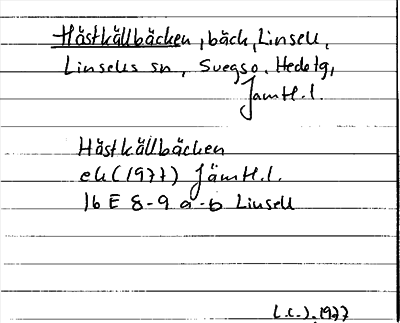 Hästkällbäcken, bäck, Linsell,
Linsells sn, Svegs o. Hede tg,
Jämtl. l.
Hästkällbäcken
ek (1977) Jämtl. l.
16 E 8-9 a-b Linsell
1977